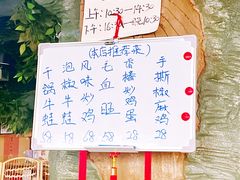 上午:10:30—14:30
下午:16:30—晚10:30
(本店推荐菜)
干锅牛蛙
泡椒牛蛙
风味炒鸡 68
毛血旺 58
香椿鸡蛋 28
手撕椒麻鸡 28